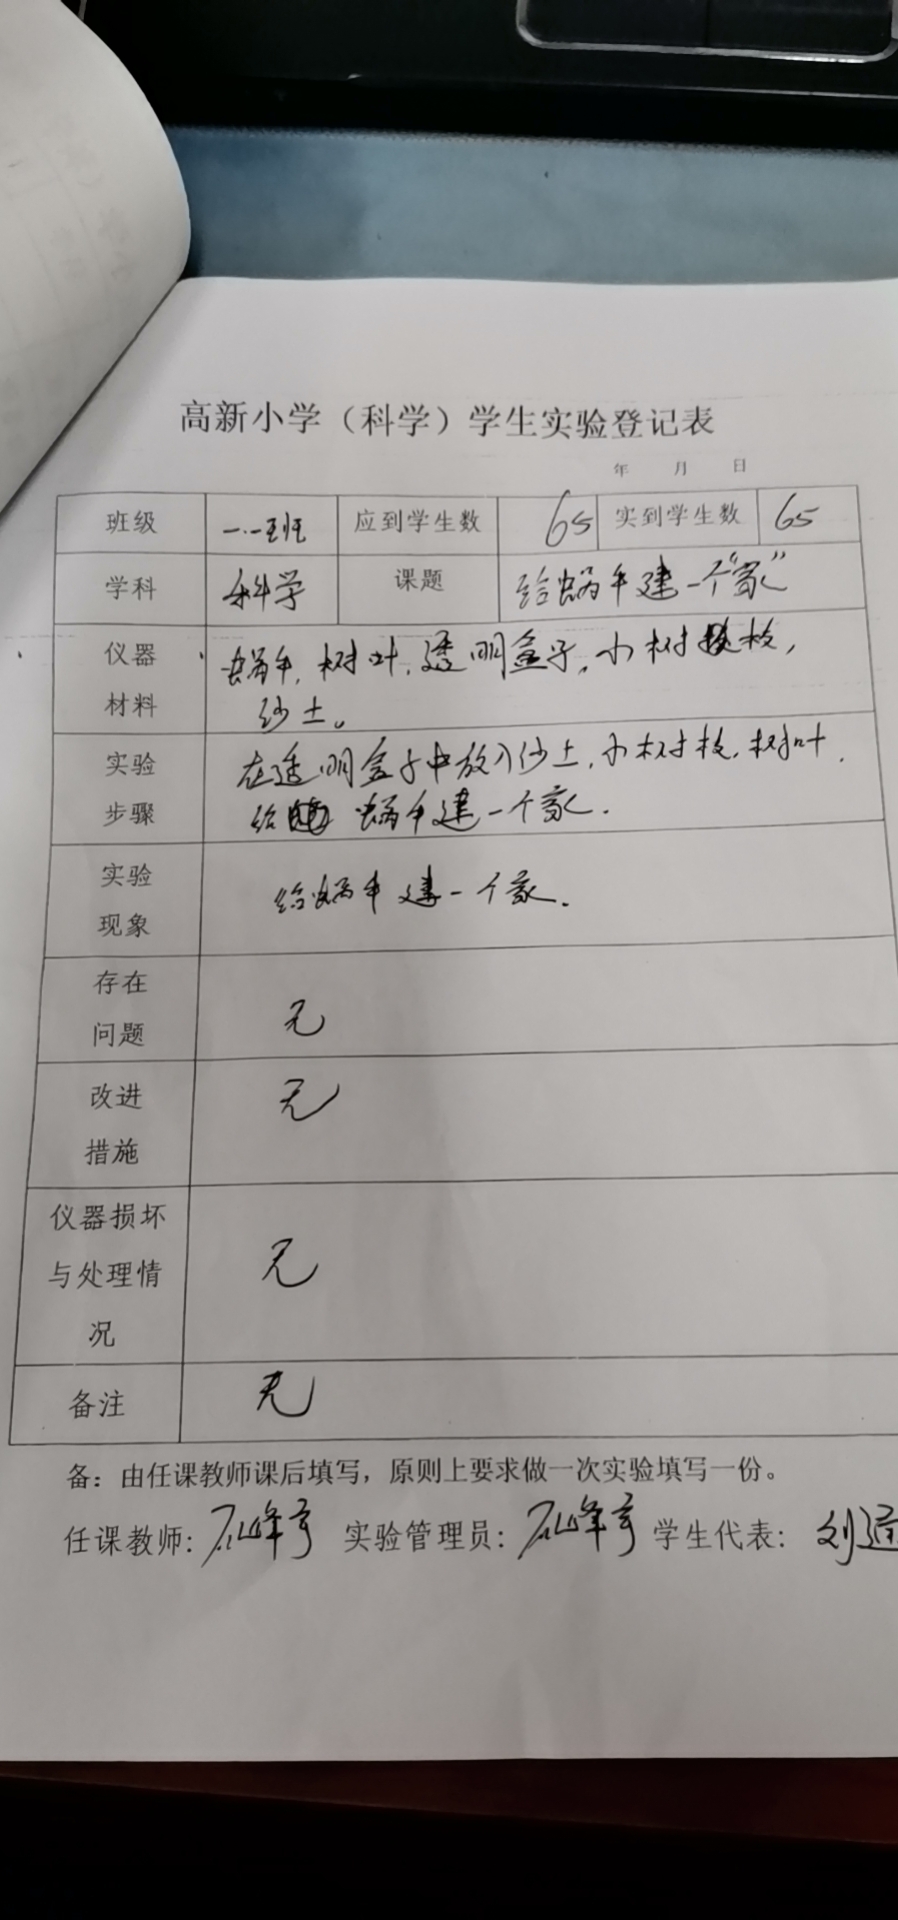 高新小学（科学）学生实验登记表
年 月 日
班级 一.一班 应到学生数 65 实到学生数 65
学科 科学 课题 给蜗牛建一个“家”
仪器材料 蜗牛，树叶，透明盒子，小树枝，
沙土。
实验步骤 在透明盒子中放入沙土，小树枝，树叶，
给 蜗牛建一个家.
实验现象 给蜗牛建一个家.
存在问题 无
改进措施 无
仪器损坏与处理情况 无
备注 无
备：由任课教师课后填写，原则上要求做一次实验填写一份。
任课教师： 实验管理员： 学生代表：刘